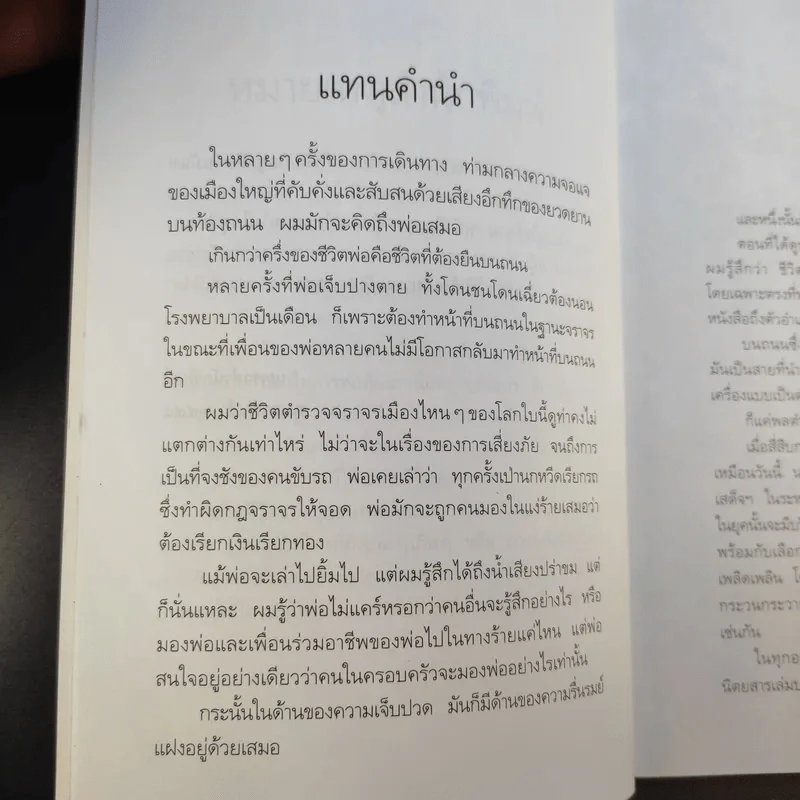 แทนคำนำ
ในหลาย ๆ ครั้งของการเดินทาง ท่ามกลางความจอแจ
ของเมืองใหญ่ที่คับคั่งและสับสนด้วยเสียงอึกทึกของยวดยาน
บนท้องถนน ผมมักจะคิดถึงพ่อเสมอ
เกินกว่าครึ่งของชีวิตพ่อคือชีวิตที่ต้องยืนบนถนน
หลายครั้งที่พ่อเจ็บปางตาย ทั้งโดนชนโดนเฉี่ยวต้องนอน
โรงพยาบาลเป็นเดือน ก็เพราะต้องทำหน้าที่บนถนนในฐานะจราจร
ในขณะที่เพื่อนของพ่อหลายคนไม่มีโอกาสกลับมาทำหน้าที่บนถนน
อีก
ผมว่าชีวิตตำรวจจราจรเมืองไหน ๆ ของโลกใบนี้ดูท่าคงไม่
แตกต่างกันเท่าไหร่ ไม่ว่าจะในเรื่องของการเสี่ยงภัย จนถึงการ
เป็นที่จงชังของคนขับรถ พ่อเคยเล่าว่า ทุกครั้งเป่านกหวีดเรียกรถ
ซึ่งทำผิดกฎจราจรให้จอด พ่อมักจะถูกคนมองในแง่ร้ายเสมอว่า
ต้องเรียกเงินเรียกทอง
แม้พ่อจะเล่าไปยิ้มไป แต่ผมรู้สึกได้ถึงน้ำเสียงปร่าขม แต่
ก็นั่นแหละ ผมรู้ว่าพ่อไม่แคร์หรอกว่าคนอื่นจะรู้สึกอย่างไร หรือ
มองพ่อและเพื่อนร่วมอาชีพของพ่อไปในทางร้ายแค่ไหน แต่พ่อ
สนใจอยู่อย่างเดียวว่าคนในครอบครัวจะมองพ่ออย่างไรเท่านั้น
กระนั้นในด้านของความเจ็บปวด มันก็มีด้านของความรื่นรมย์
แฝงอยู่ด้วยเสมอ
และหนึ่งนั้น
ตอนที่ได้ดู
ผมรู้สึกว่า ชีวิ
โดยเฉพาะตรงที่
หนังสือถึงตัวอำ
บนถนนซึ่
มันเป็นสายที่นำ
เครื่องแบบเป็น
ก็แค่พลตำ
เมื่อสี่สิบ
เหมือนวันนี้
เสด็จฯ ในระห
ในยุคนั้นจะมี
พร้อมกับเลือก
เพลิดเพลิน
กระวนกระวา
เช่นกัน
ในทุก
นิตยสารเล่ม